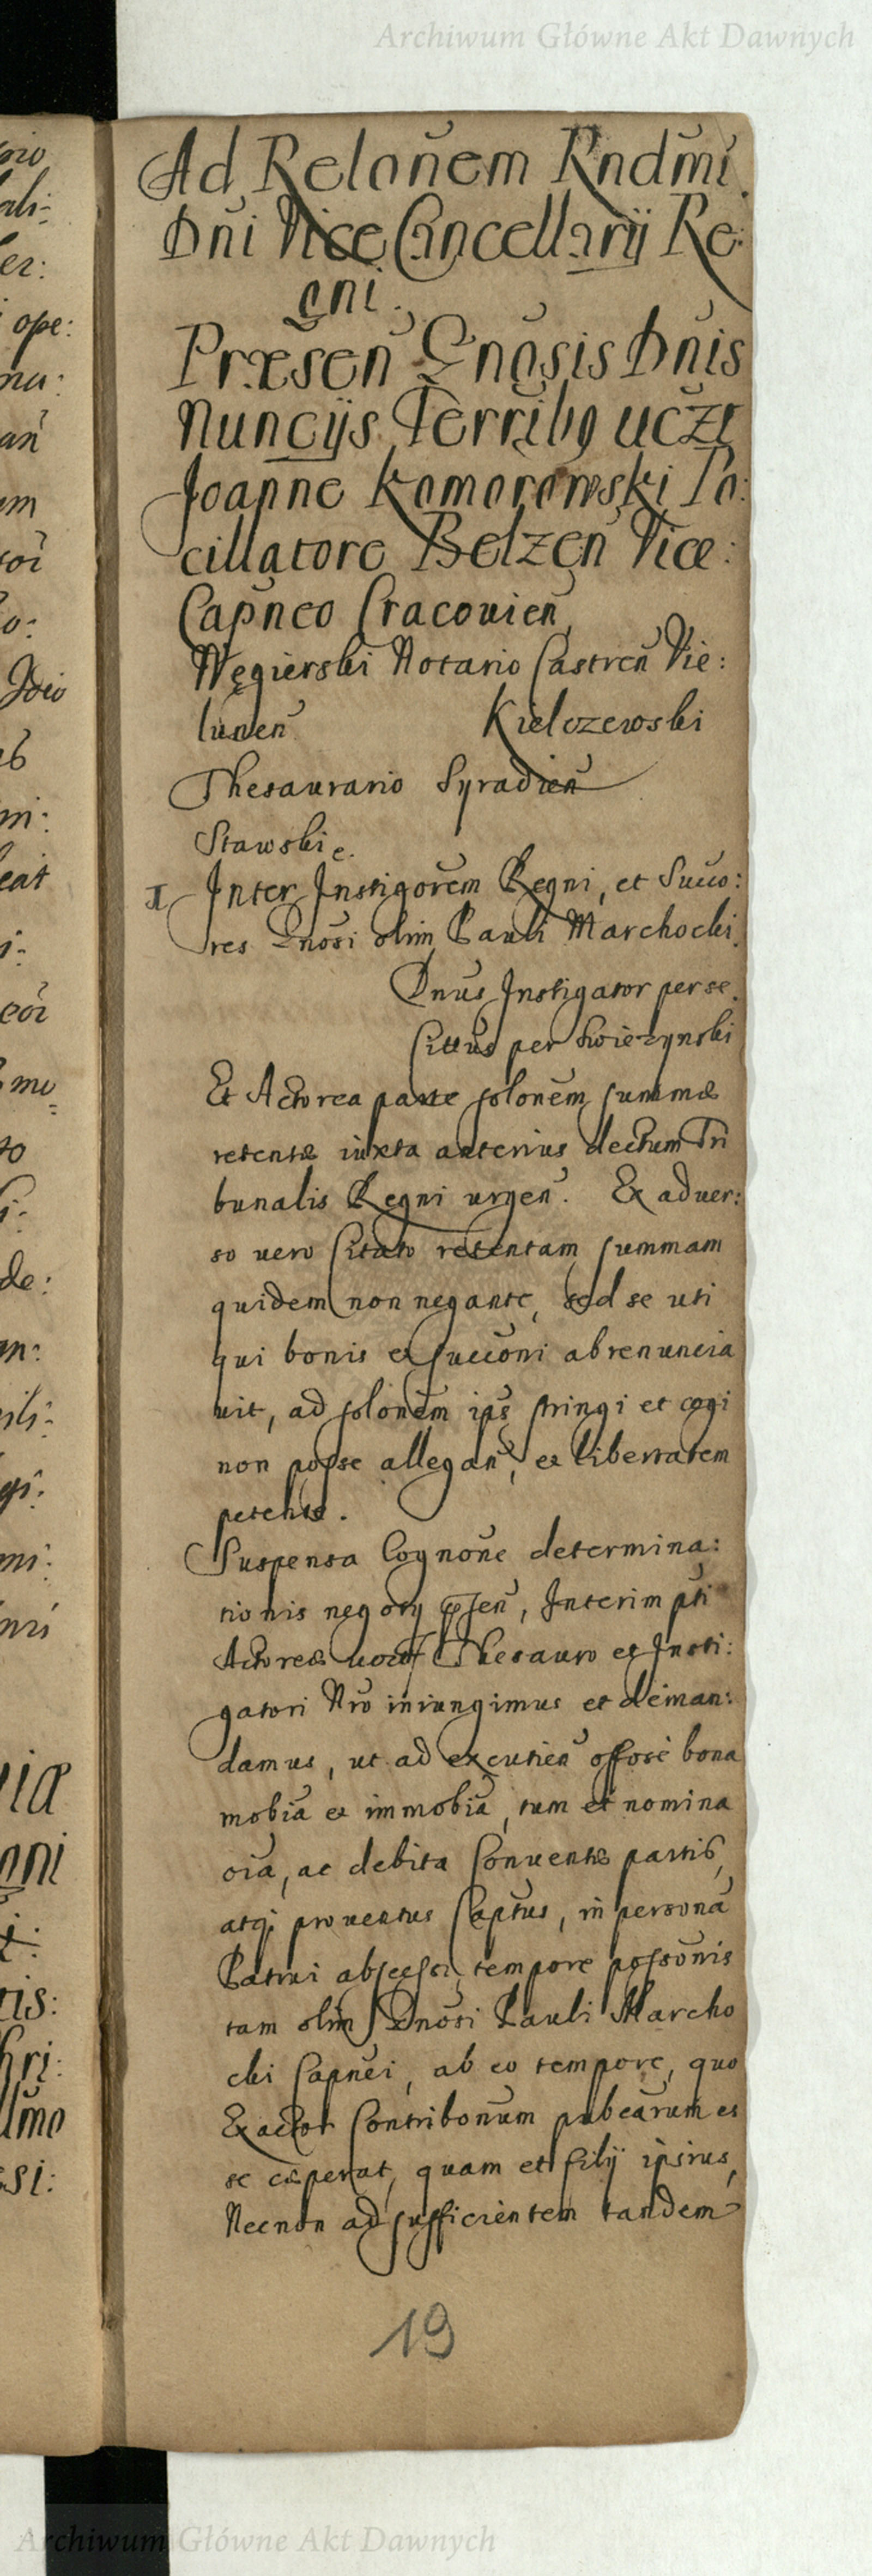 Archiwum Główne Akt Dawnych
Ad Relonem Rndmi
Dni Vice Cancellarij Re:
gni.
Præsen Gnosis Dnis
Nuncijs Terribq uczt
Joanne Komorowski Po:
cillatore Belzen Vice:
Capneo Cracouien
Węgierski Notario Castren Vie:
lunen Kielczewski
Thesaurario Syradien
Stawski e.
I Inter Instigorem Regni, et Succo:
res Gnosi olim Pauli Marchocki
Dnus Instigator per se.
Cittus per Swierzynski
Et Actorea parte solonem summæ
retentæ iuxta anterius dectum Tri
bunalis Regni urgen. Ex aduer:
so uero Citato retentam summam
quidem non negante, sed se uti
qui bonis et succoni abrenuncia
uit, ad solonem ips stringi et cogi
non posse allegan, et libertatem
petente.
Suspensa Cognone determina:
tionis negoty psen, Interim pti
Actoreæ Thesauro et Insti:
gatori Nro iniungimus et deman:
damus, ut ad excutien bona
mobia et immobia, tum et nomina
oia, ac debita Conuentæ partis,
atq prouentus Captus, in persona
Patrui tempore possonis
tam olim Gnosi Pauli Marcho
cki Capnei, ab eo tempore, quo
Exactor Contribonum pubcarum es
se cæperat, quam et filij ipsius,
Necnon ad sufficientem tandem
19
Archiwum Główne Akt Dawnych